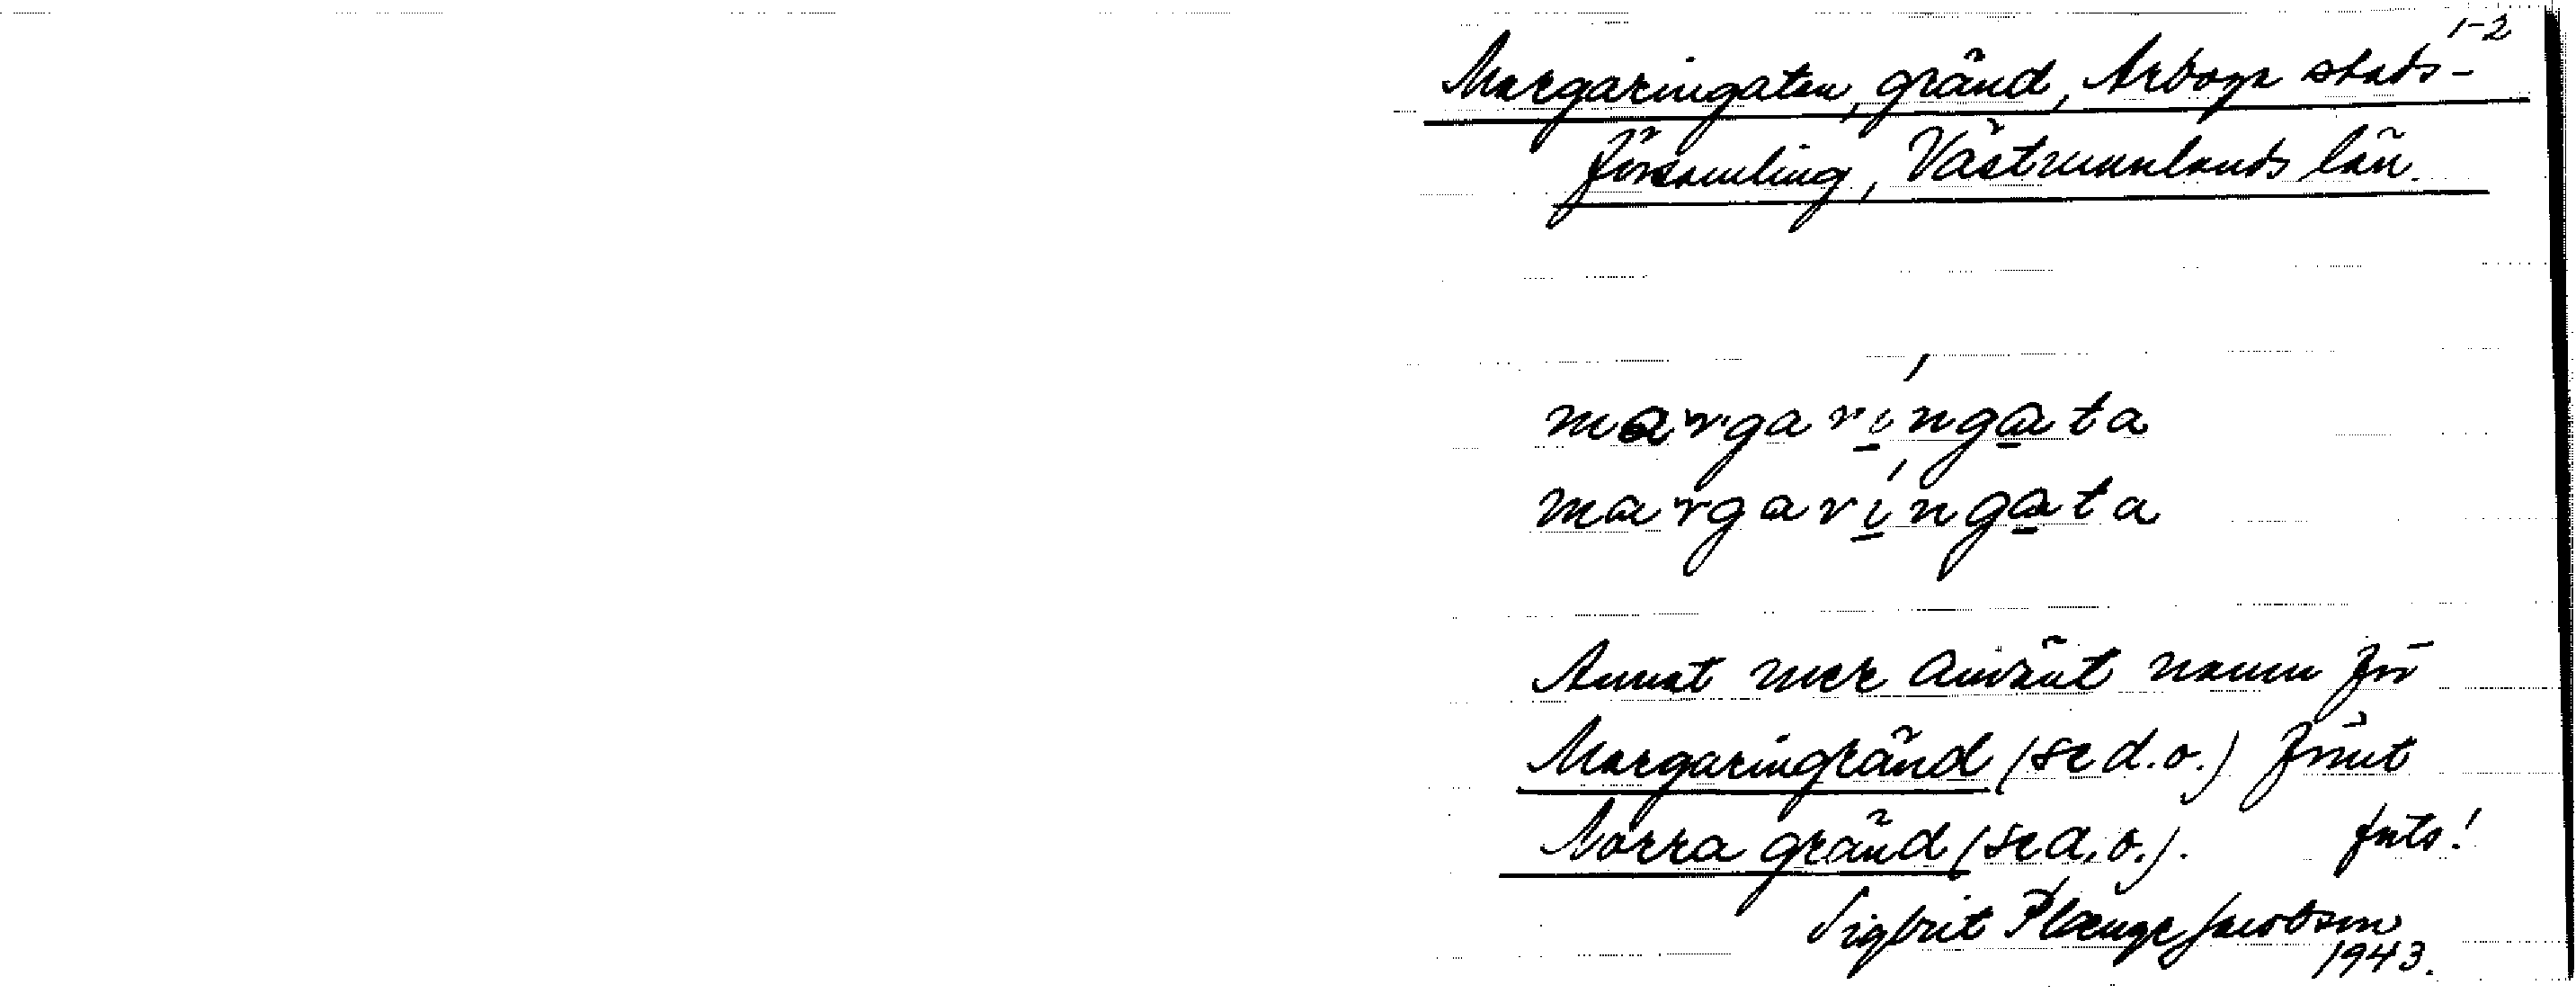 1-2
Margaringatan, gränd, Arboga stads-
församling, Västmanlands län.
margaringata
margaringata
Annat mer använt namn för
Margaringränd (se d.o.) förut
Norra gränd (se d.o.). forts!
Sigbrit Plænge Jacobson
1943.